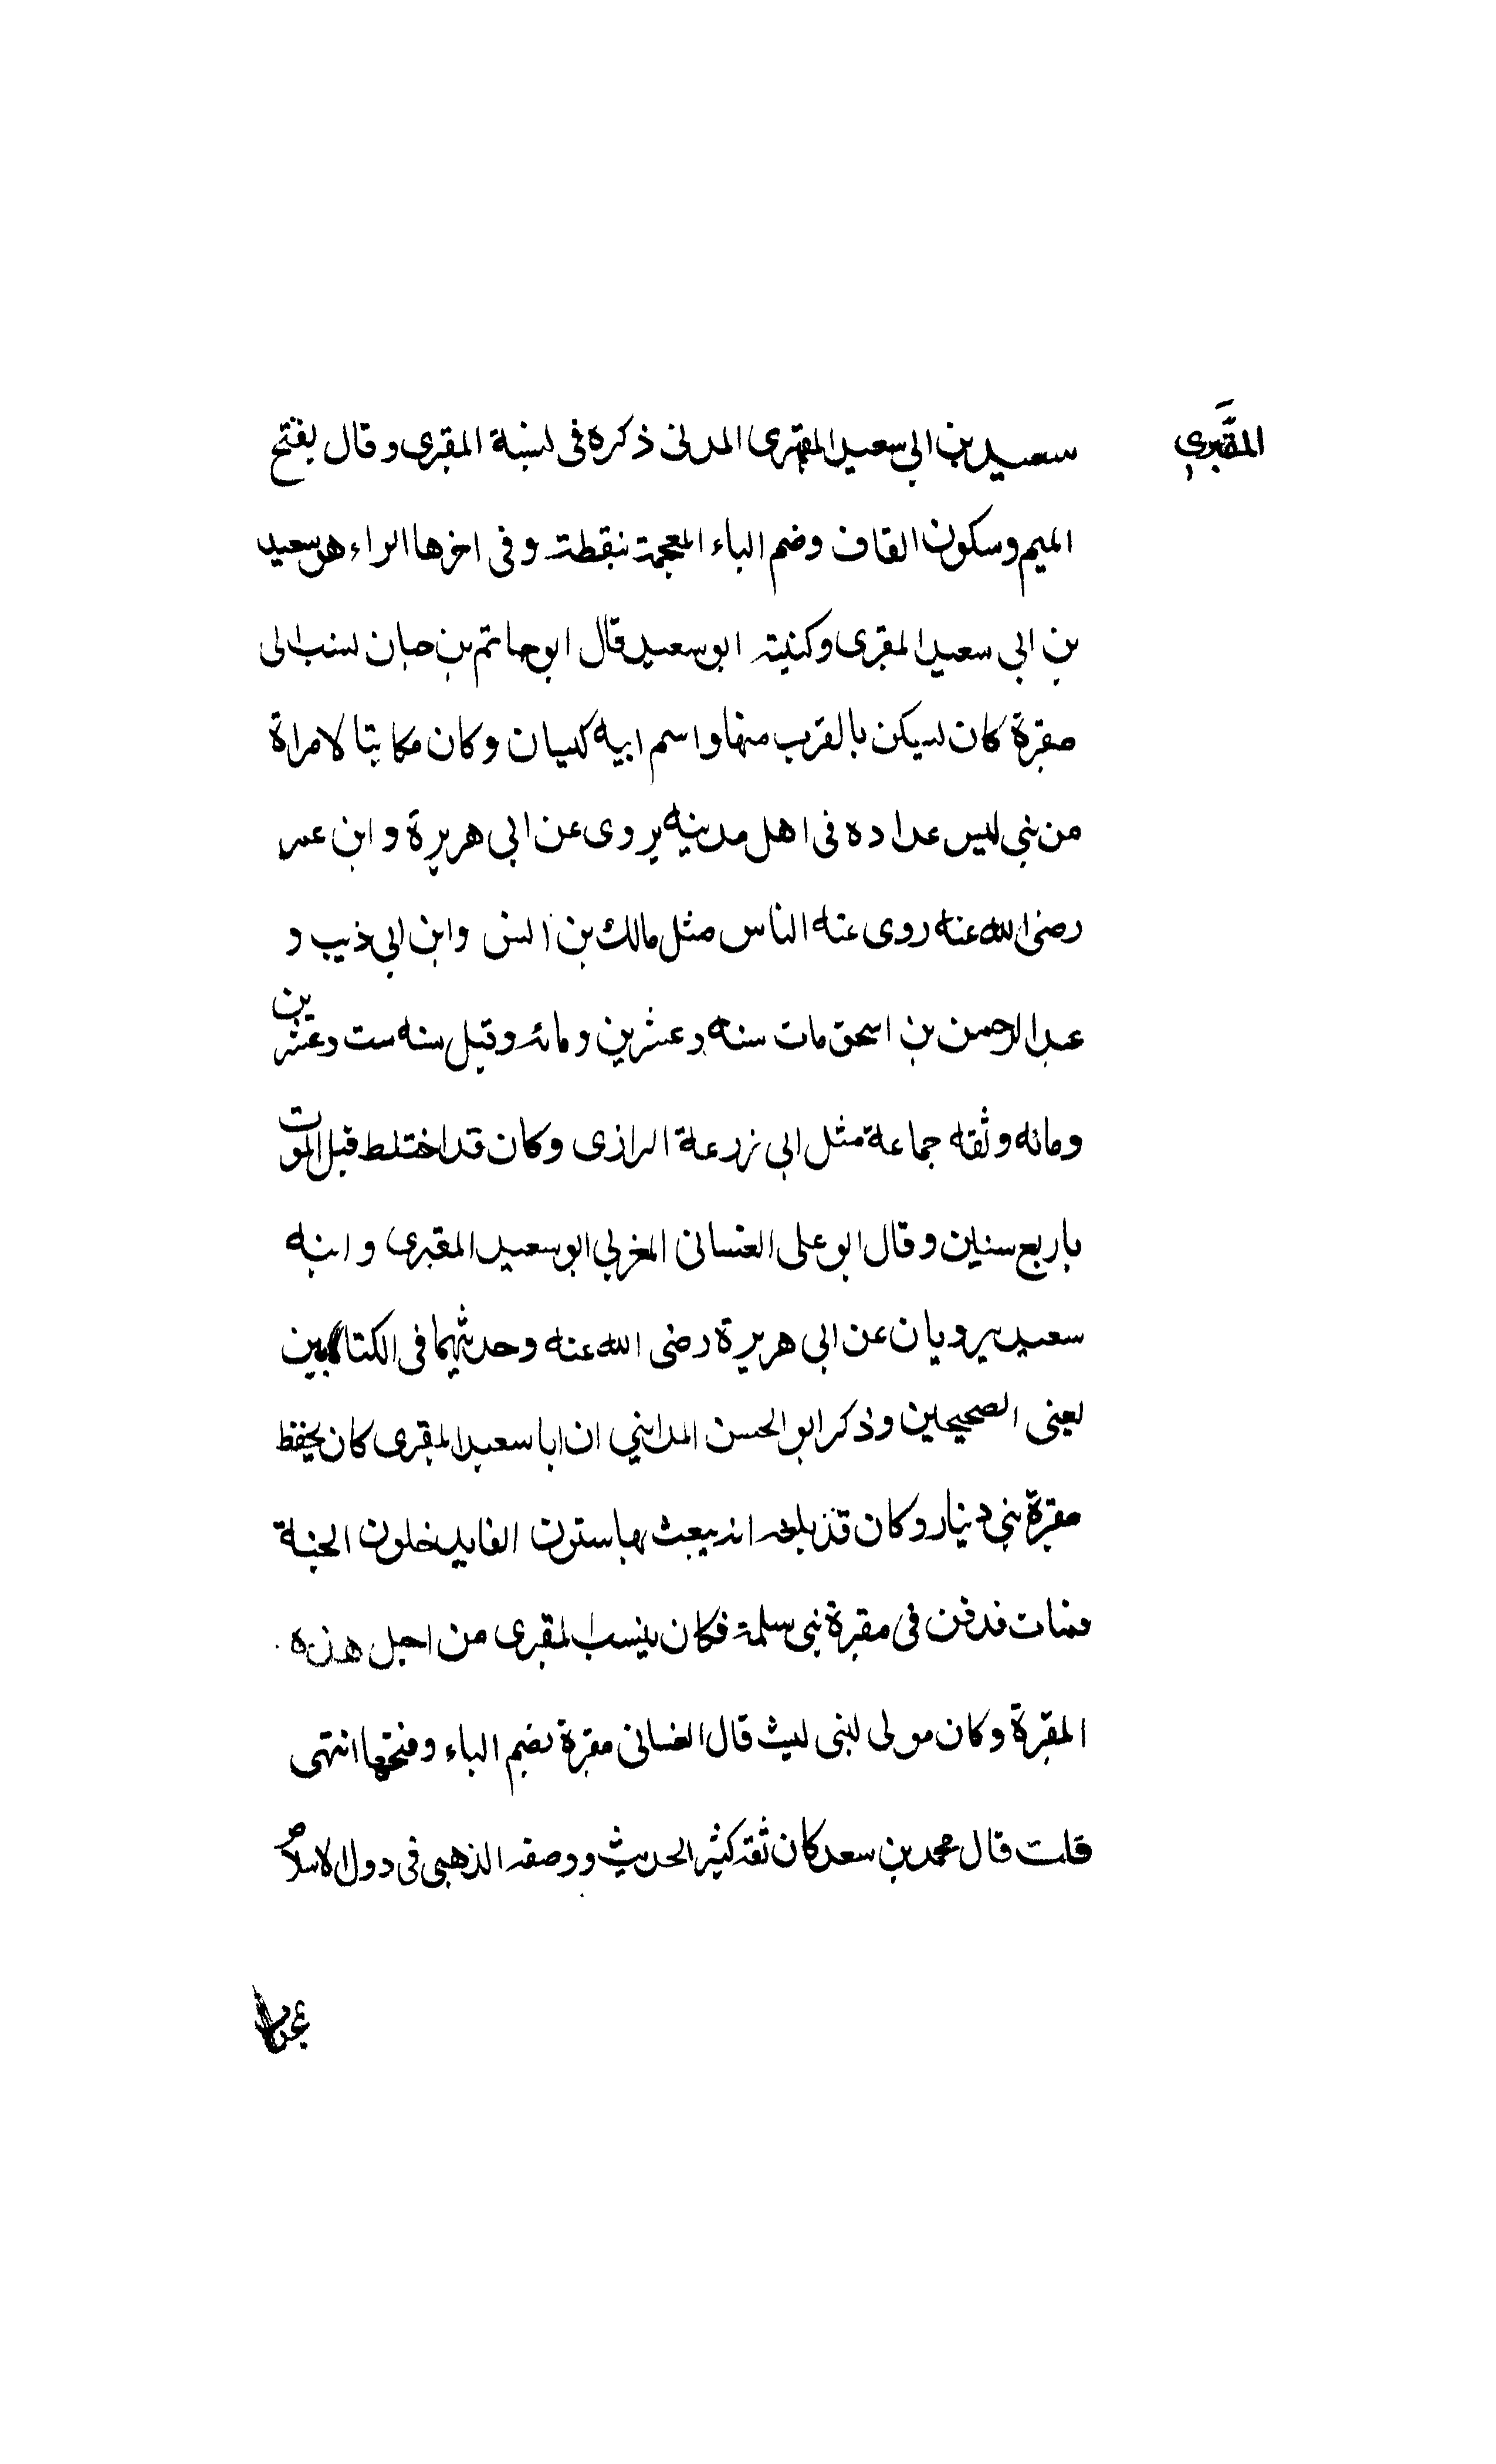 المقبري
سعيد بن ابي سعيد المقبرى المدنى ذكره فى نسبة المقبرى وقال بفتح
الميم وسكون القاف وضم الباء المعجمة بنقطة وفى اخرها الراء هو سعيد
بن ابي سعيد المقبرى وكنيته ابو سعيد قال ابو حاتم بن حبان نسب الى
مقبرة كان يسكن بالقرب منها واسم ابيه كيسان وكان مكاتبا لامراة
من بنى ليس عداده فى اهل مدينه يروى عن ابى هريرة وابن عمر
رضى الله عنه روى عنه الناس مثل مالك بن انس وابن ابى ذيب و
عبد الرحمن بن اسحق مات سنه وعشرين ومائه وقيل سنه ست وعشرين
ومائه وثقه جماعة مثل ابى زرعة الرازى وكان قد اختلط قبل الموت
باربع سنين وقال ابو على الغسانى المغربى ابو سعيد المقبرى وابنه
سعيد يرويان عن ابى هريرة رضى الله عنه وحديثهما فى الكتابين
يعنى الصحيحين وذكر ابو الحسن المداينى ان ابا سعيد المقبرى كان يحفظ
مقبرة بنى دينار وكان قد بلغه انه يبعث بها ستون الفا يدخلون الجنة
فمات فدفن فى مقبرة بنى سلمة فكان ينسب المقبرى من اجل هذه
المقبرة وكان مولى لبنى ليث قال الغسانى مقبرة بضم الباء وفتحها انتهى
قلت قال محمد بن سعد كان ثقة كثير الحديث ووصفه الذهبى فى دول الاسلام